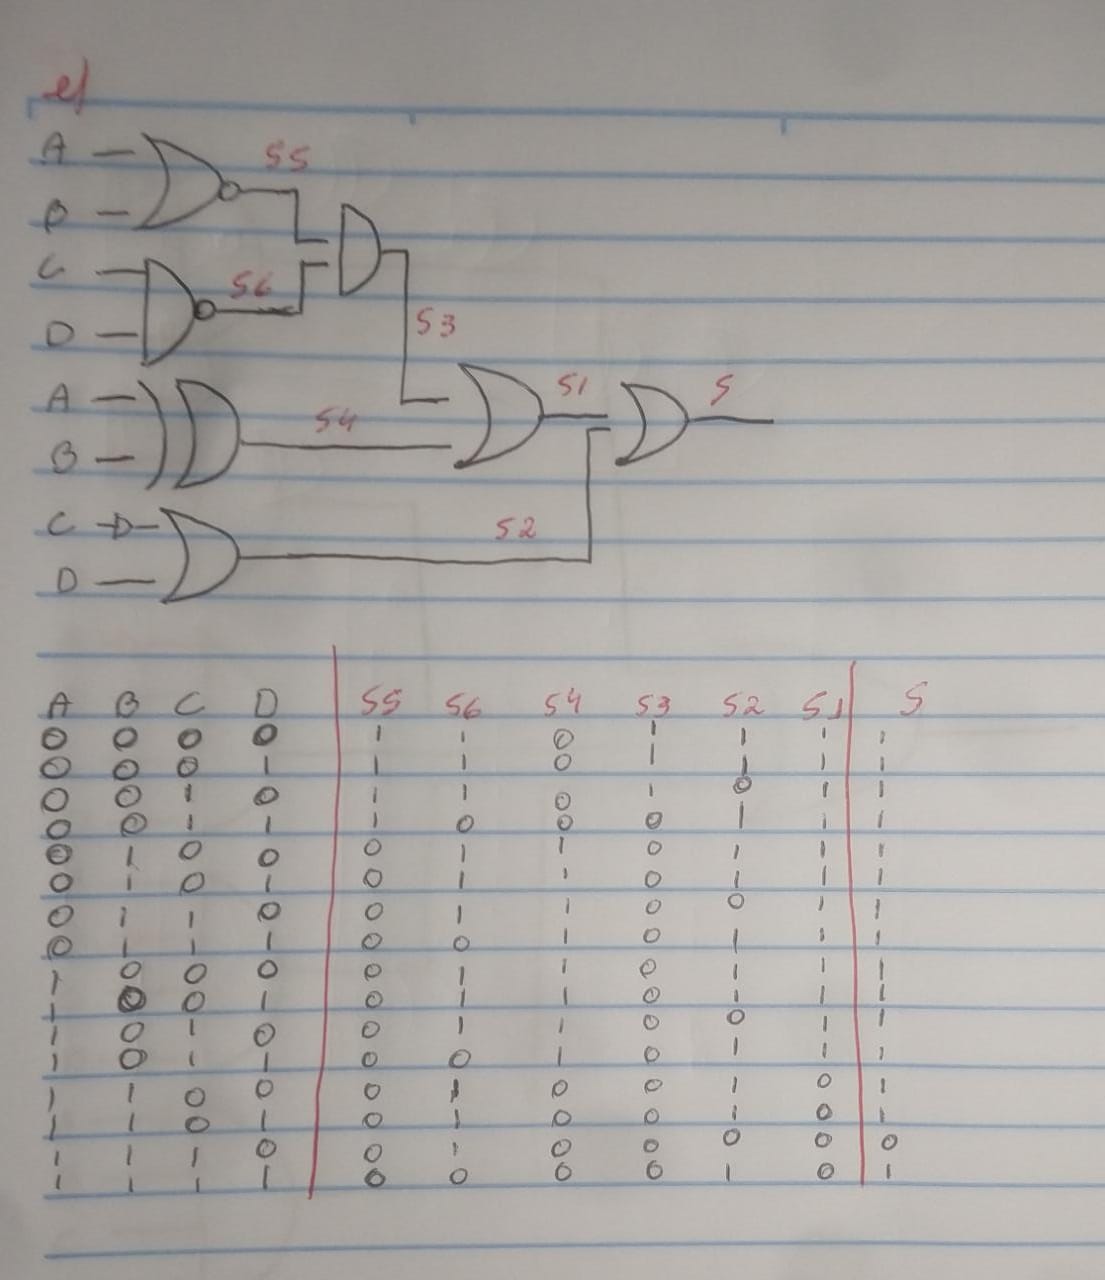 e)
A
S5
B
C
S6
D
S3
A
S4
S1
S
B
C
S2
D
A B C D S5 S6 S4 S3 S2 S1 S
0 0 0 0 1 1 0 1 1 1 1
0 0 0 1 1 1 0 1 1 1 1
0 0 1 0 1 1 0 1 0 1 1
0 0 1 1 1 0 0 0 1 1 1
0 1 0 0 0 1 1 0 1 1 1
0 1 0 1 0 1 1 0 1 1 1
0 1 1 0 0 1 1 0 0 1 1
0 1 1 1 0 0 1 0 1 1 1
1 0 0 0 0 1 1 0 1 1 1
1 0 0 1 0 1 1 0 1 1 1
1 0 1 0 0 1 1 0 0 1 1
1 0 1 1 0 0 1 0 1 1 1
1 1 0 0 0 1 0 0 1 0 1
1 1 0 1 0 1 0 0 1 0 1
1 1 1 0 0 1 0 0 0 0 0
1 1 1 1 0 0 0 0 1 0 1